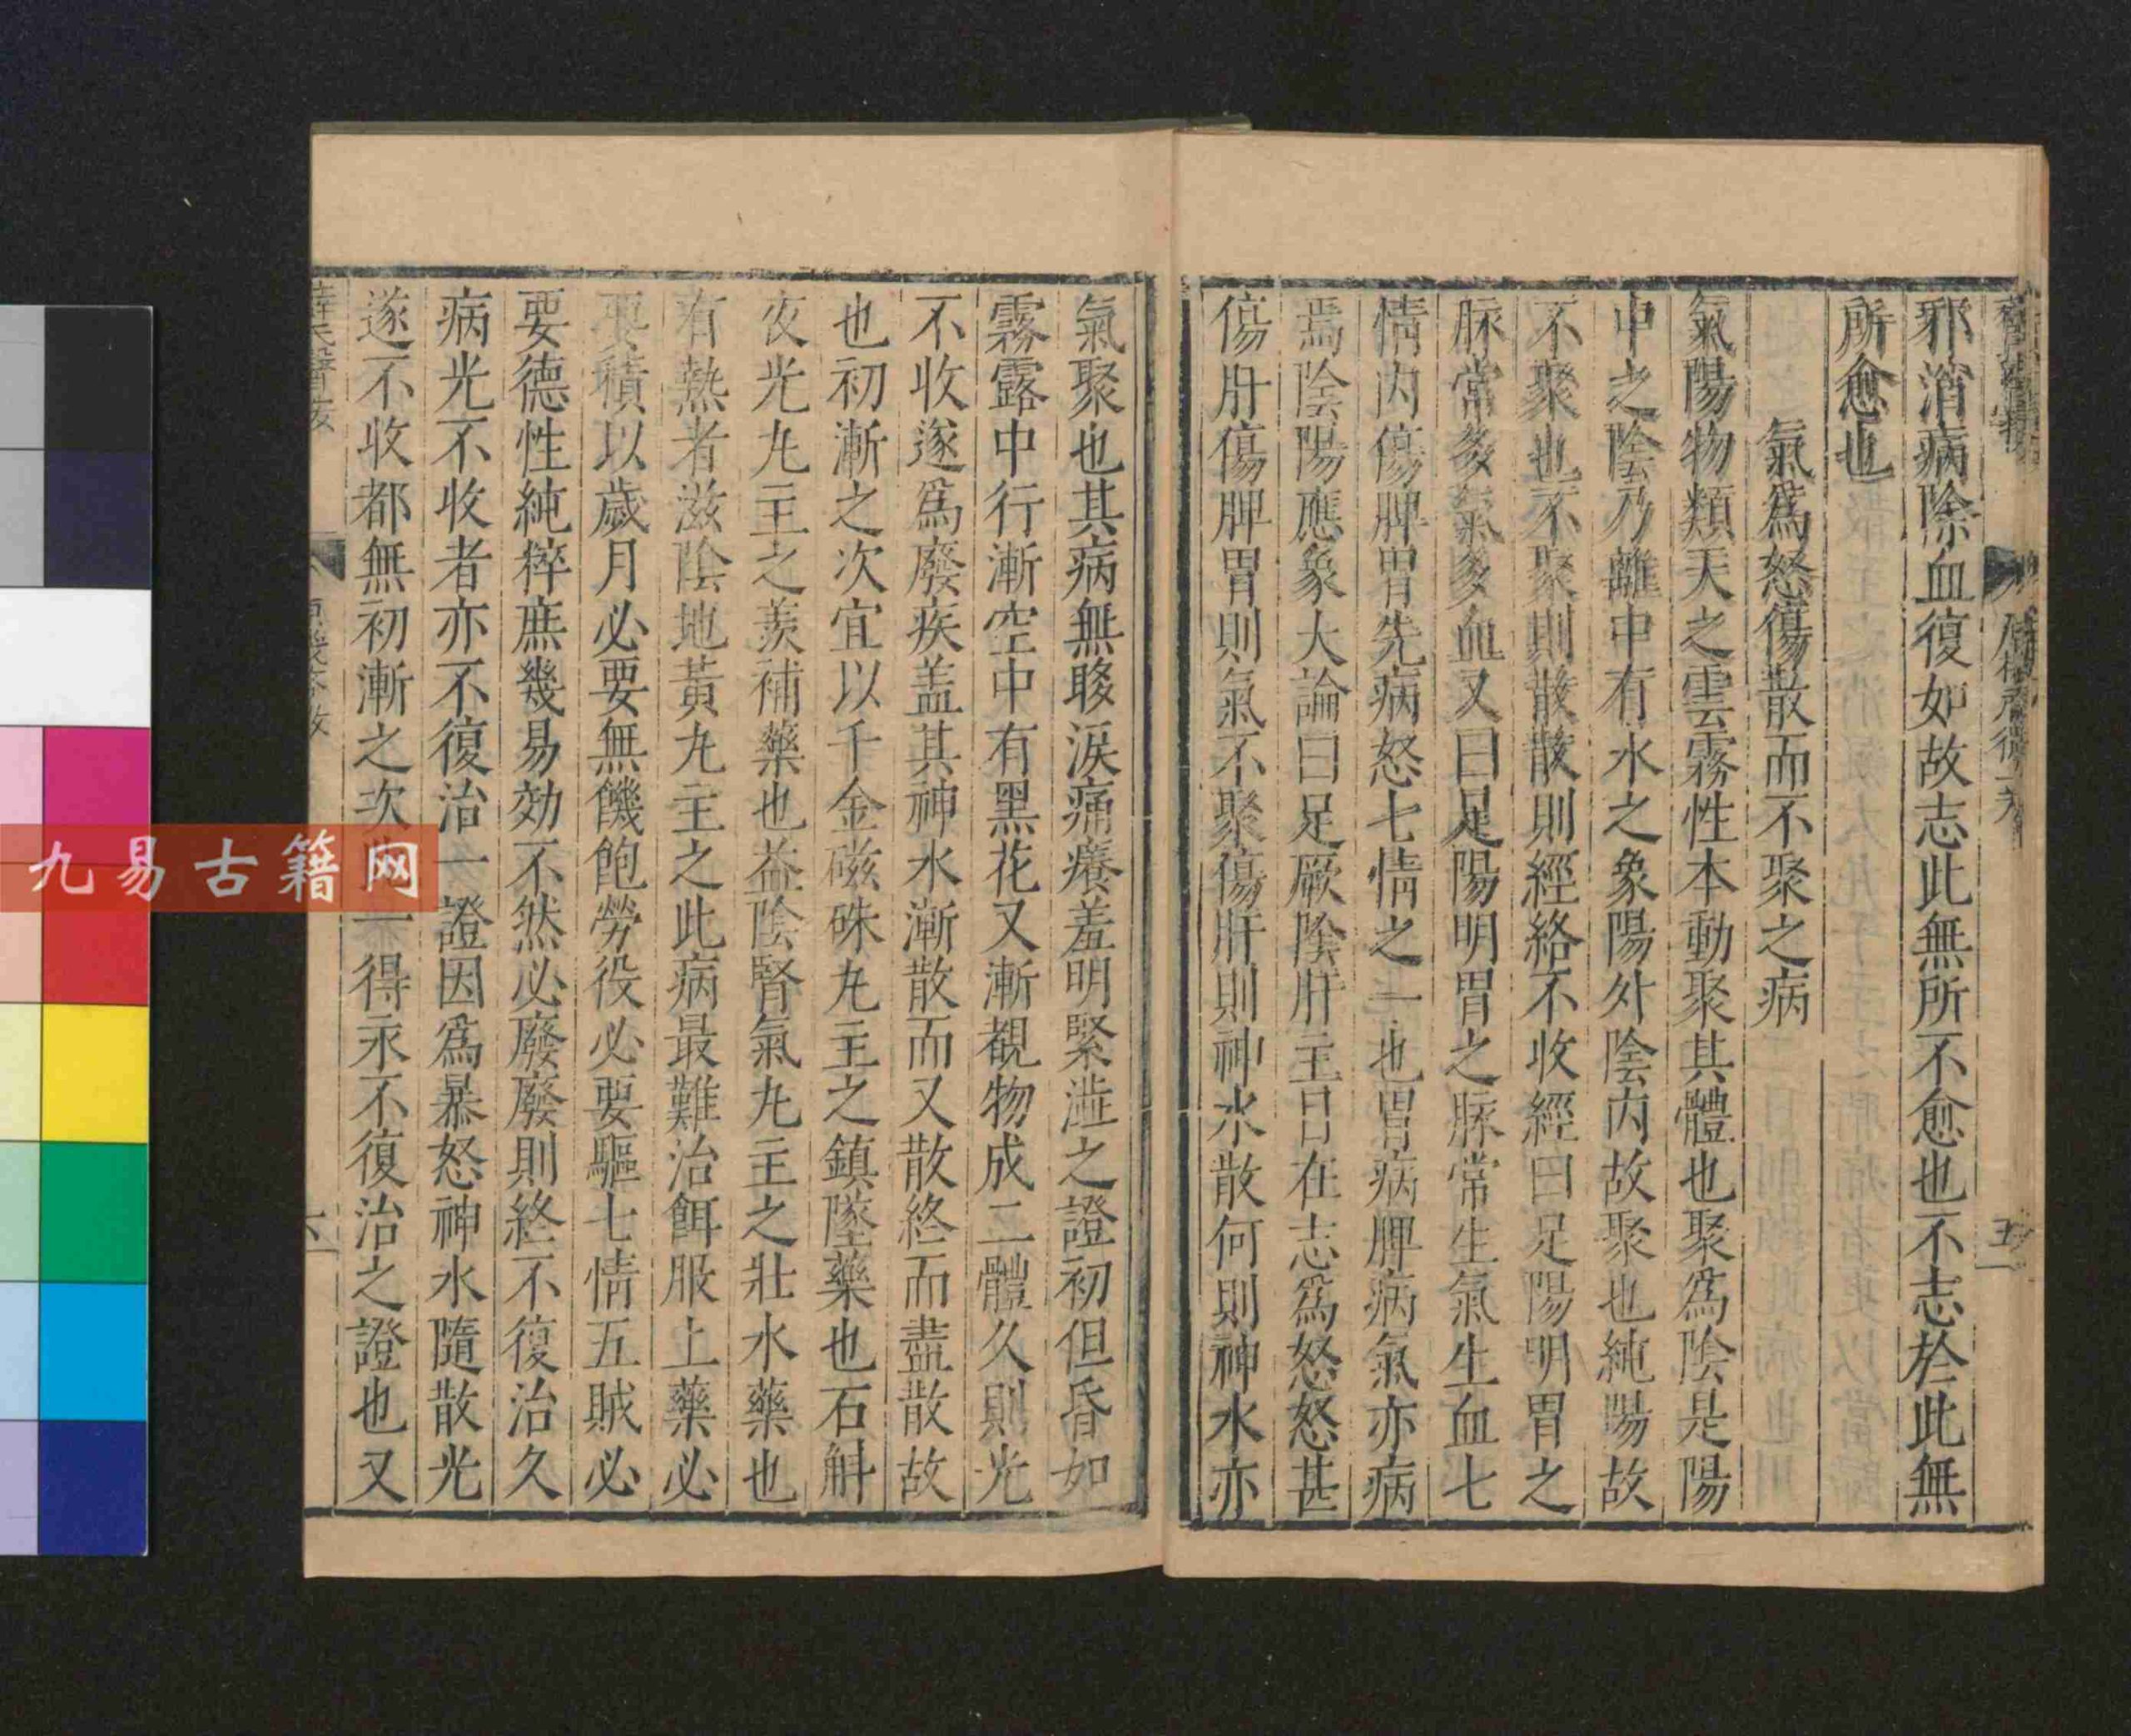 邪消病除血復如故志此無所不愈也不志於此無
所愈也
氣爲怒傷散而不聚之病
氣陽物類天之雲霧性本動聚其體也聚爲陰是陽
中之陰乃離中有水之象陽外陰内故聚也純陽故
不聚也不聚則散散則經絡不收經曰足陽明胃之
脉常多氣多血又曰足陽明胃之脉常生氣生血七
情内傷脾胃先病怒七情之一也胃病脾病氣亦病
焉陰陽應象大論曰足厥陰肝主目在志爲怒怒甚
傷肝傷脾胃則氣不聚傷肝則神水散何則神水亦
氣聚也其病無眵淚痛癢羞明緊澁之證初但昏如
霧露中行漸空中有黑花又漸覩物成二體久則光
不收遂爲廢疾盖其神水漸散而又散終而盡散故
也初漸之次宜以千金磁硃丸主之鎮墜藥也石斛
夜光丸主之羨補藥也益陰腎氣丸主之壯水藥也
有熱者滋陰地黃丸主之此病最難治餌服上藥必
要積以歲月必要無饑飽勞役必要驅七情五賊必
要德性純粹庶幾易効不然必廢廢則終不復治久
病光不收者亦不復治一證因爲暴怒神水隨散光
遂不收都無初漸之次一得永不復治之證也又
五
六
九易古籍网